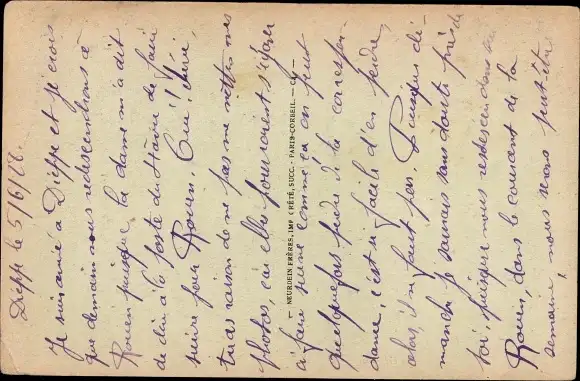 Dieppe le 5/6/28.
Je suis arrivé à Dieppe et je crois
que demain nous redescendrons à
Rouen puisque la dame m'a dit
de dire à la poste du Hâvre de faire
suivre pour Rouen. Oui! Juré,
tu as raison de ne pas me mettre mes
photos, car elles pourraient s'égarer
à faire suivre comme ça on peut
quelquefois perdre de la correspon-
dance, c'est si facile d'en perdre,
alors, il ne faut pas. Puisque di-
manche je saurais sans doute près de
toi, puisque nous redescendons sur
Rouen, dans le courant de la
semaine, nous serons peut-être
— NEURDEIN FRÈRES, IMP. CRÉTÉ, SUCC. - PARIS-CORBEIL. —